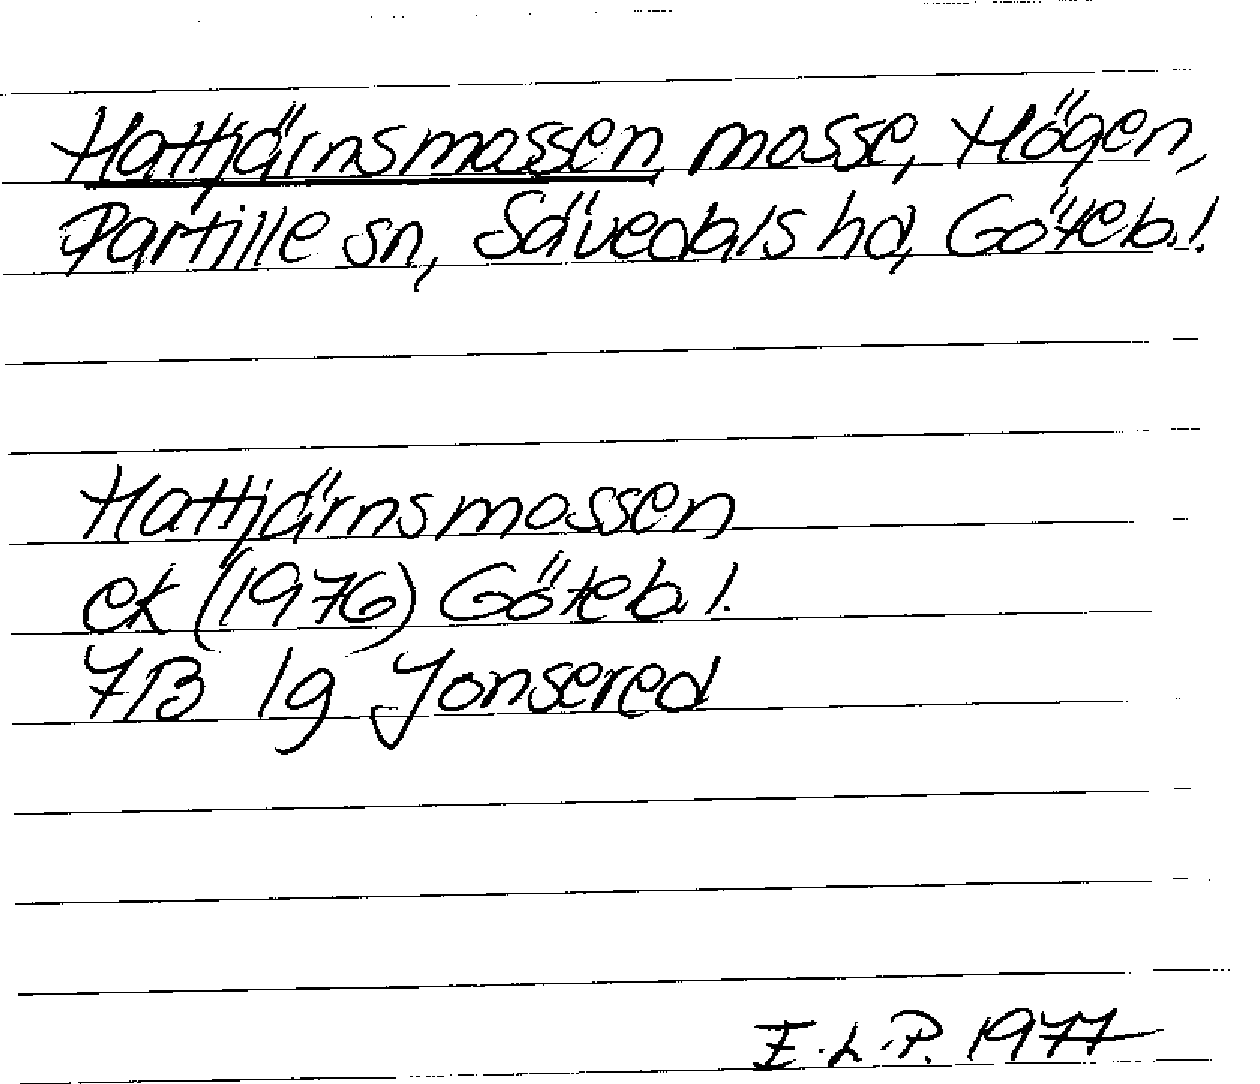 Hattjärnsmossen mosse, Högen,
Partille sn, Sävedals hd, Göteb. l.
Hattjärnsmossen
ek (1976) Göteb. l.
7B 1g Jonsered
E.L.P. 1977